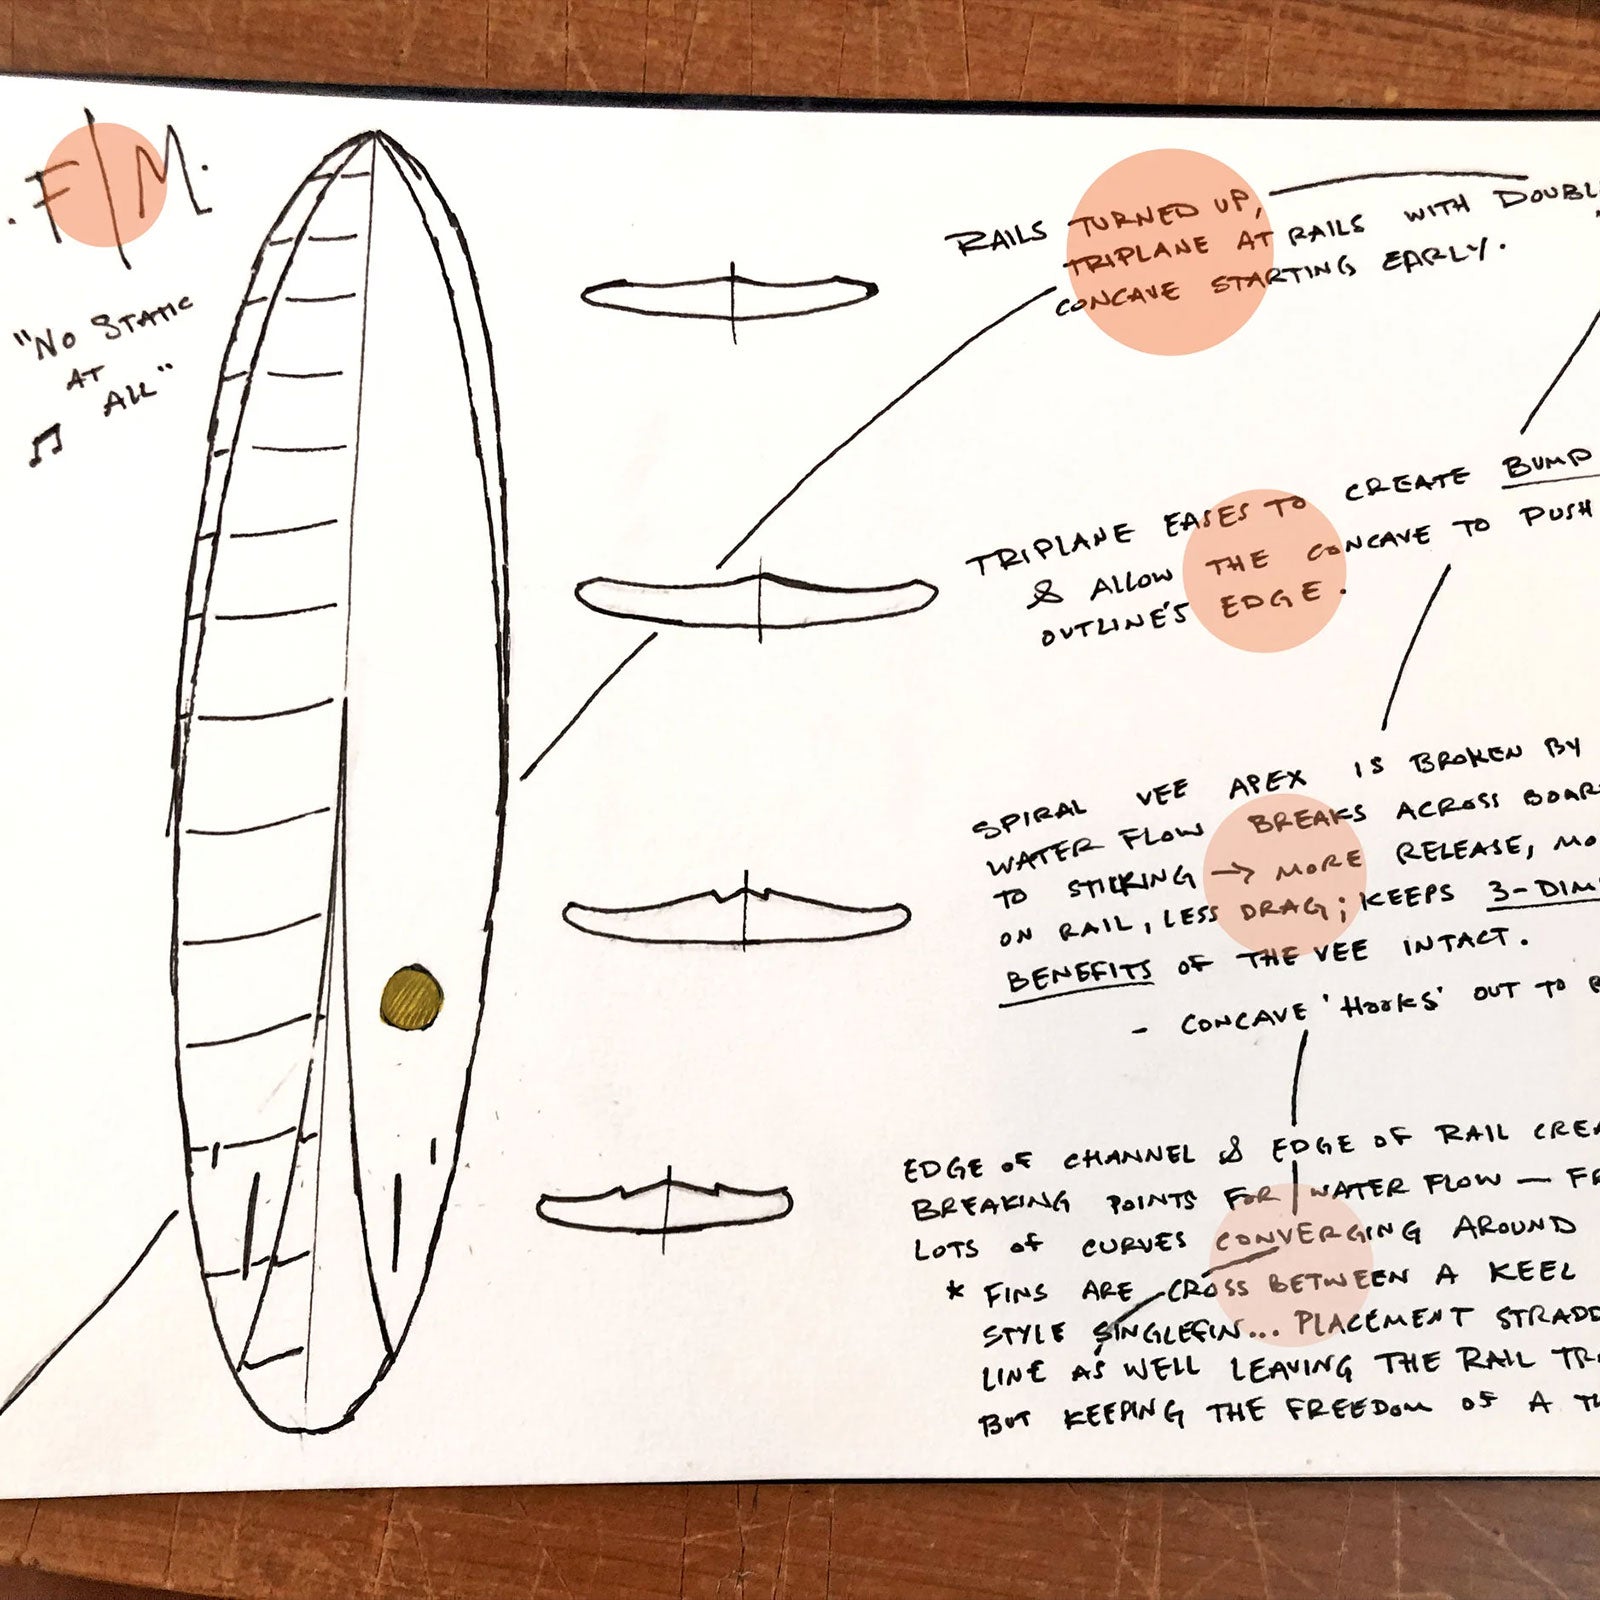 .F|M.
"NO STATIC
AT
ALL"
RAILS TURNED UP,
TRIPLANE AT RAILS WITH DOUBL
CONCAVE STARTING EARLY.
TRIPLANE EASES TO CREATE BUMP
& ALLOW THE CONCAVE TO PUSH
OUTLINE'S EDGE.
SPIRAL VEE APEX IS BROKEN BY
WATER FLOW BREAKS ACROSS BOAR
TO STICKING → MORE RELEASE, MO
ON RAIL, LESS DRAG; KEEPS 3-DIM
BENEFITS OF THE VEE INTACT.
- CONCAVE 'HOOKS' OUT TO
EDGE OF CHANNEL & EDGE OF RAIL CREA
BREAKING POINTS FOR WATER FLOW — FR
LOTS OF CURVES CONVERGING AROUND
* FINS ARE CROSS BETWEEN A KEEL
STYLE SINGLEFIN... PLACEMENT STRADD
LINE AS WELL LEAVING THE RAIL TR
BUT KEEPING THE FREEDOM OF A T